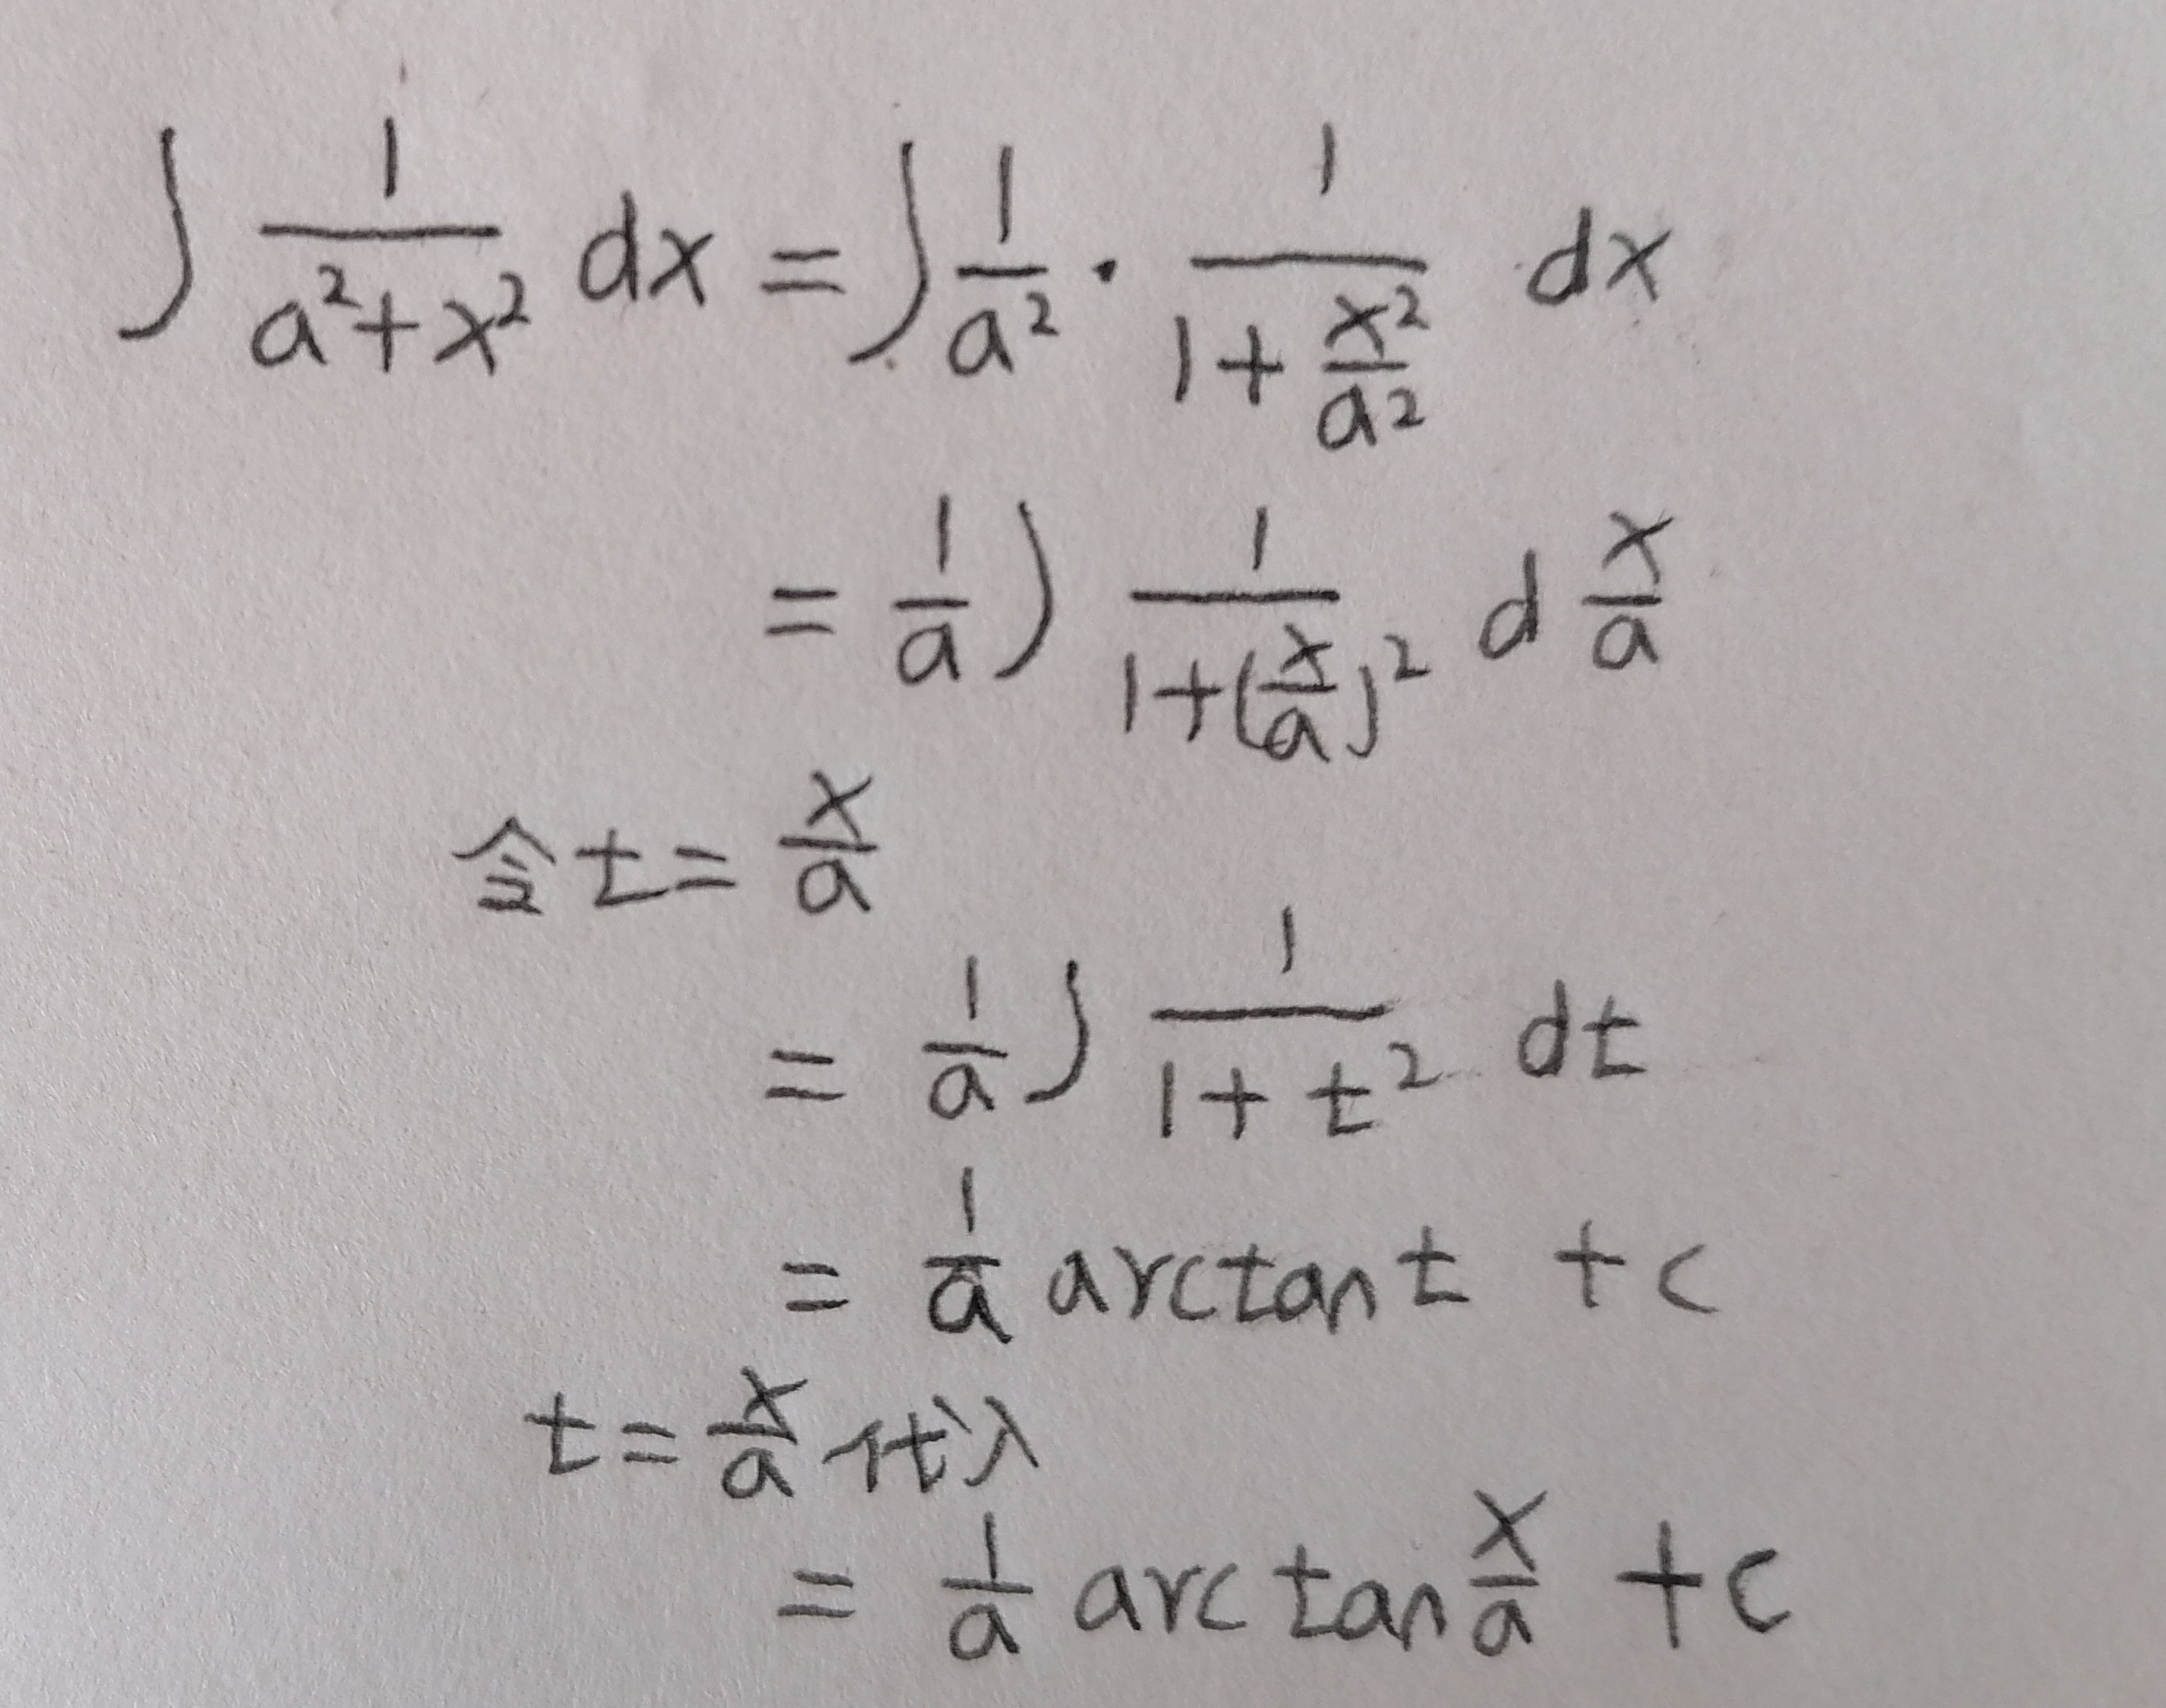 ∫ 1/(a²+x²) dx = ∫ 1/a² · 1/(1+x²/a²) dx
= 1/a ∫ 1/(1+(x/a)²) d x/a
令 t = x/a
= 1/a ∫ 1/(1+t²) dt
= 1/a arctan t + c
t = x/a 代入
= 1/a arctan x/a + c